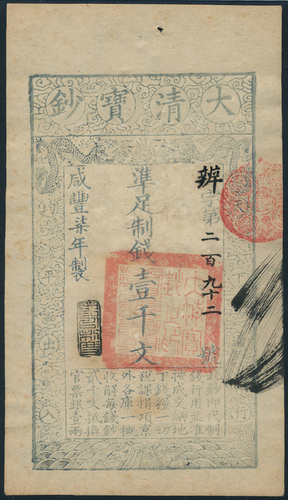 大清寶鈔
辨字第二百九十二號
準足制錢壹千文
咸豐柒年製
均平出入
即代制
錢行用並准
按成交納地
丁錢糧一切
稅課捐項京
外各庫一概
收解每錢鈔
貳千文抵換
官票銀壹兩